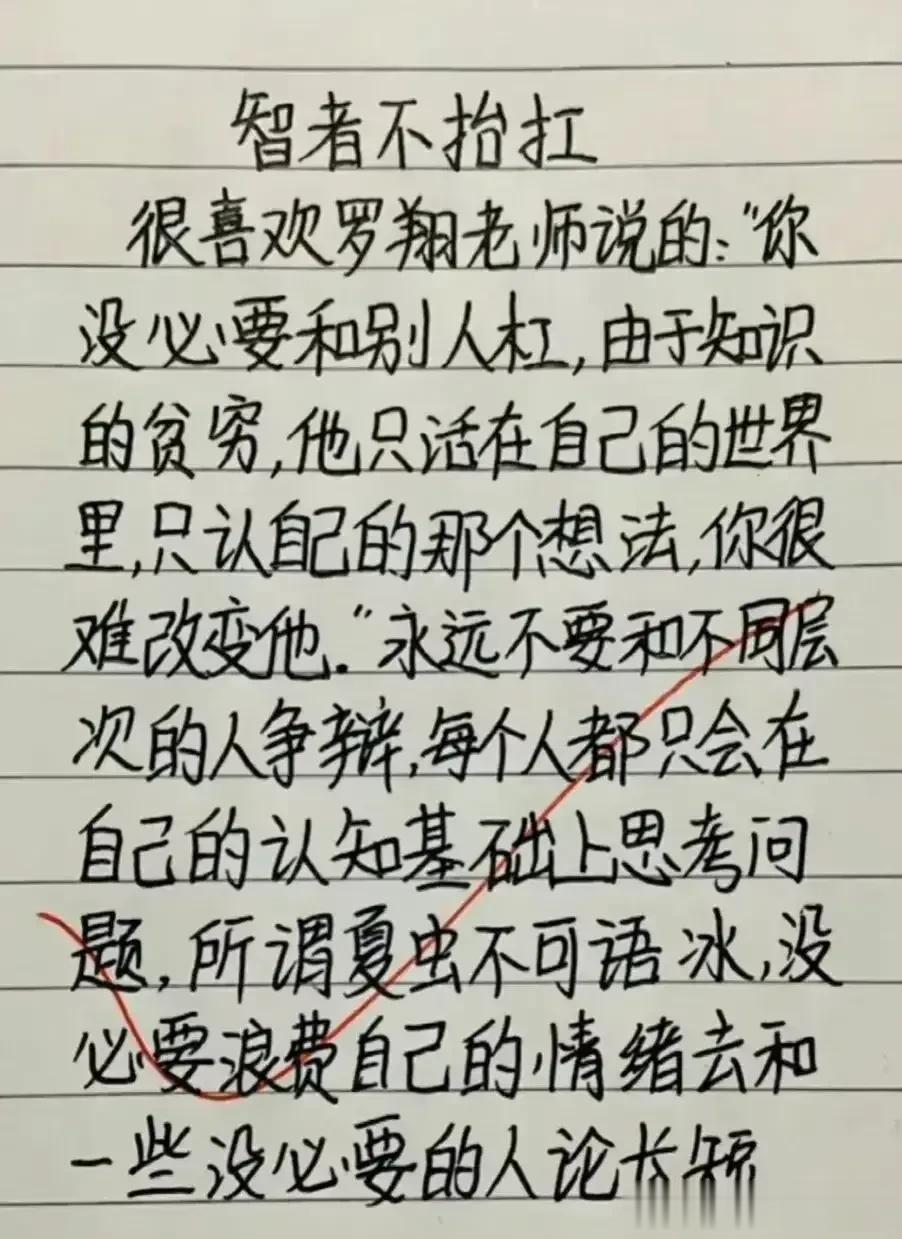 智者不抬扛
很喜欢罗翔老师说的:"你
没必要和别人杠,由于知识
的贫穷,他只活在自己的世界
里,只认自己的那个想法,你很
难改变他."永远不要和不同层
次的人争辩,每个人都只会在
自己的认知基础上思考问
题,所谓夏虫不可语冰,没
必要浪费自己的情绪去和
一些没必要的人论长短